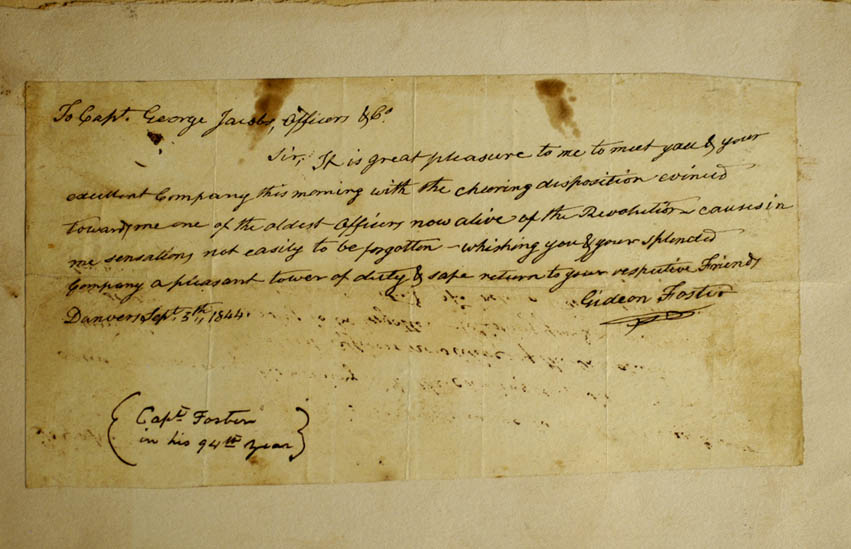 To Capt. George Jacobs, Officers & Co
Sir, It is great pleasure to me to meet you & your
excellent Company this morning with the cheering disposition evinced
towards me one of the oldest Officers now alive of the Revolution causes in
me sensations not easily to be forgotten – whishing you & your splended
Company a pleasant tower of duty & safe return to your respective Friends
Gideon Foster
Danvers Sept. 5th, 1844.
(Capt Foster
in his 94th Year)